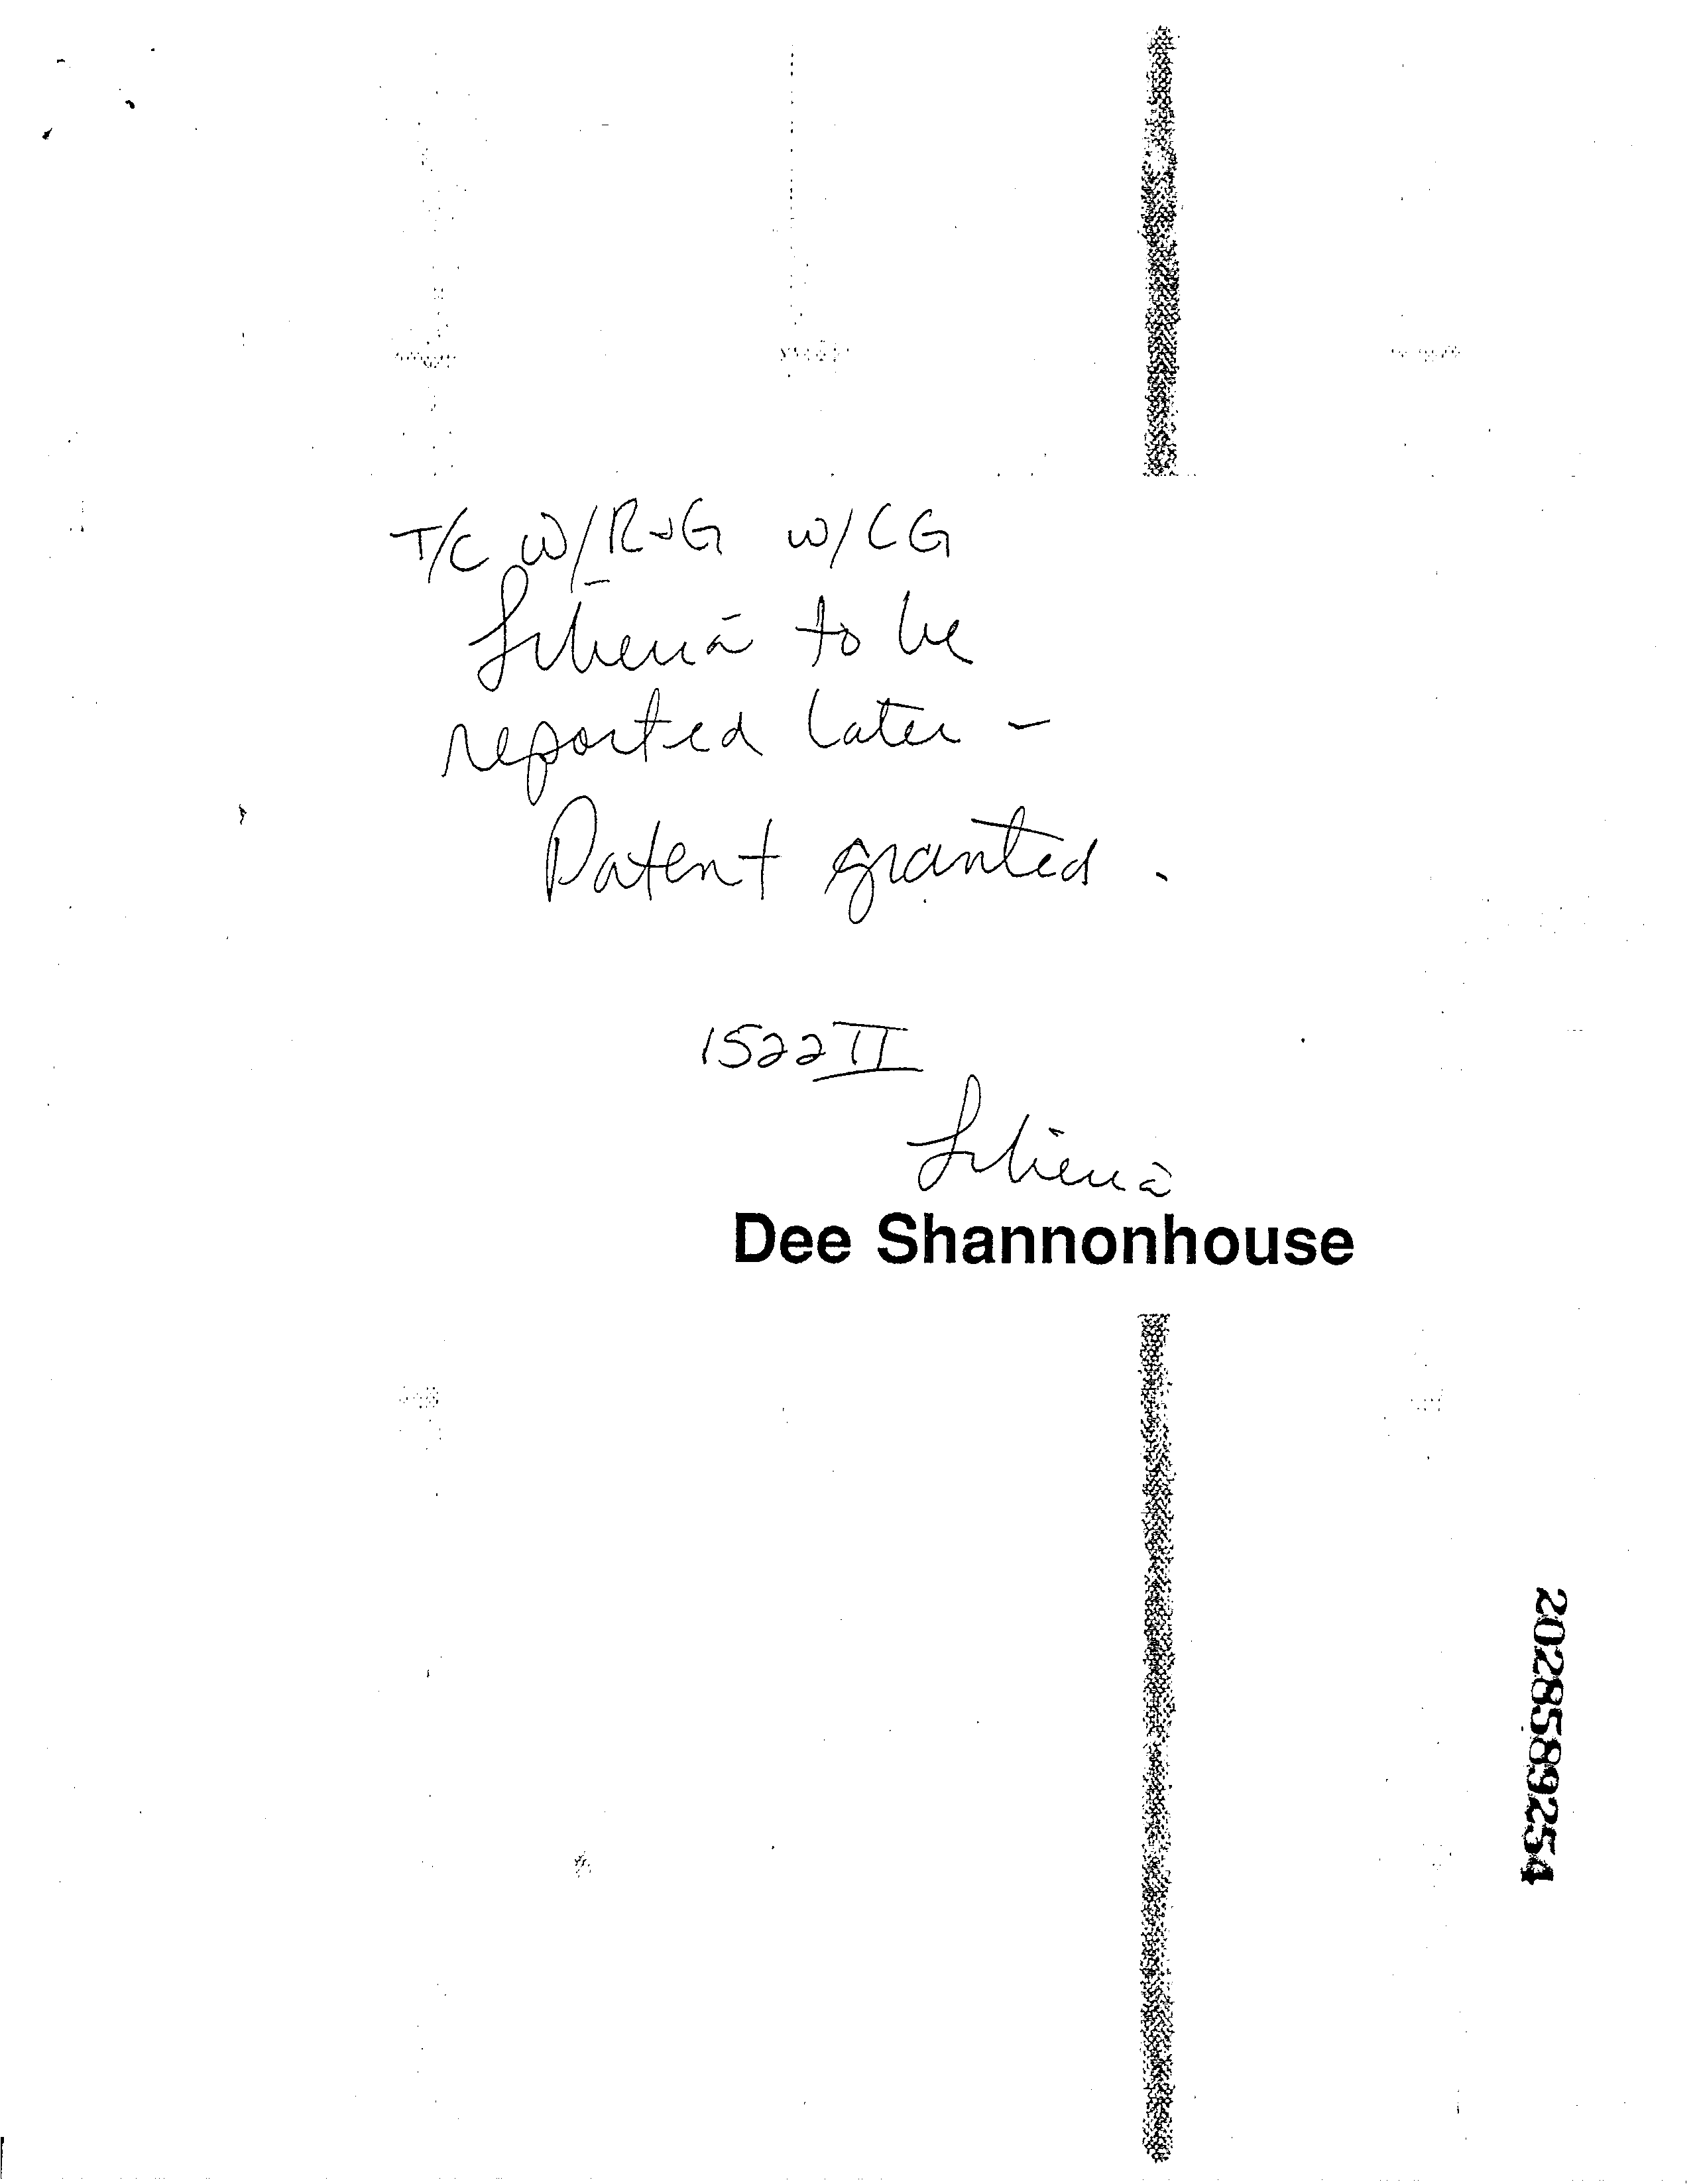 T/C W/R&G w/CG
Liberia to be
reported later -
Patent granted.
1522 II
Liberia
Dee Shannonhouse
2028589254